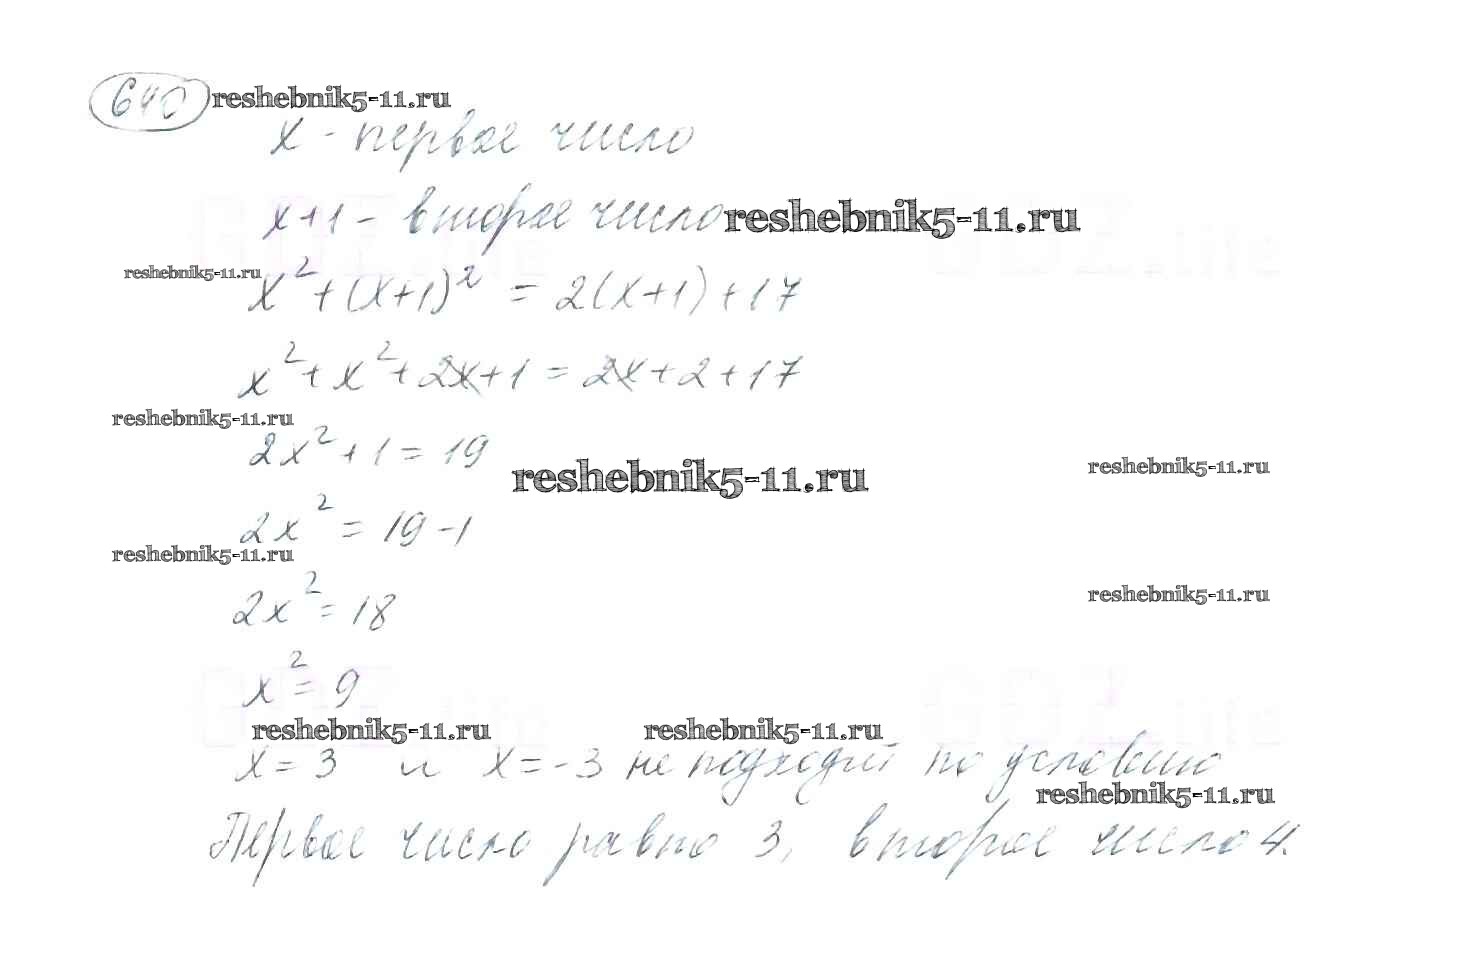 640 reshebnik5-11.ru
x - первое число
x+1 - второе число reshebnik5-11.ru
reshebnik5-11.ru
x² + (x+1)² = 2(x+1) + 17
x² + x² + 2x + 1 = 2x + 2 + 17
reshebnik5-11.ru
2x² + 1 = 19
reshebnik5-11.ru reshebnik5-11.ru
2x² = 19 - 1
reshebnik5-11.ru
2x² = 18 reshebnik5-11.ru
x² = 9
reshebnik5-11.ru reshebnik5-11.ru
x = 3 и x = -3 не подходит по условию
reshebnik5-11.ru
Первое число равно 3, второе число 4.